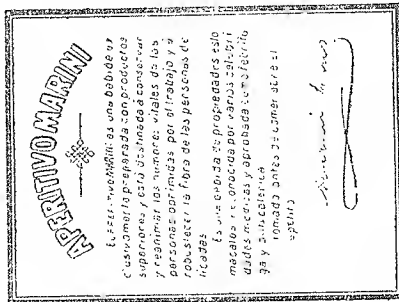 APERITIVO MARINI
El APERITIVO MARINI es una bebida ex
clusivamente preparada con productos
superiores y está destinada á conservar
y reanimar los humores vitales de las
personas oprimidas por el trabajo y a
robustecer la fibra de las personas de
licadas
Es una bebida de propiedades esto
macales reconocida por varias celebri
dades medicas y aprobada como
y anticolerica
Tomado antes de comer abre el
apetito